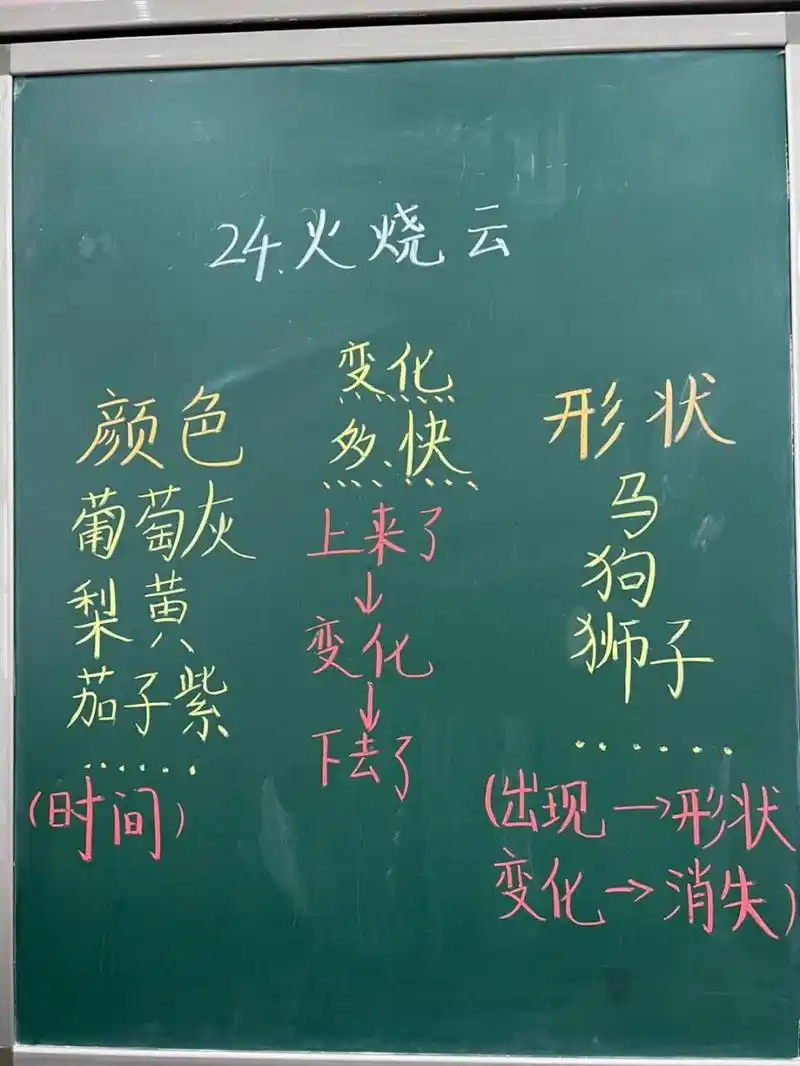 24.火烧云
颜色
葡萄灰
梨黄
茄子紫
......
(时间)
变化
多、快
上来了
↓
变化
↓
下去了
形状
马
狗
狮子
......
(出现→形状
变化→消失)